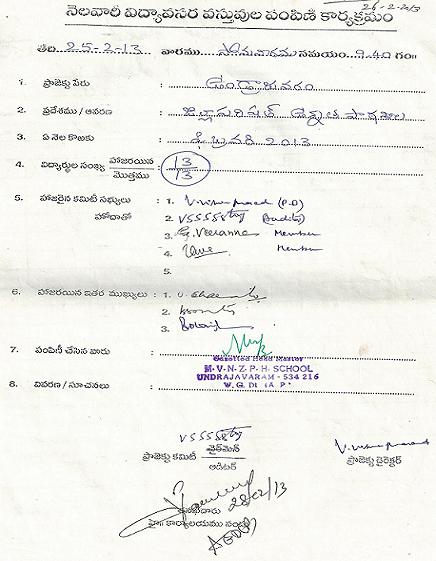 26-2-2013
నెలవారి విద్యావసర వస్తువుల పంపిణి కార్యక్రమం
తేది 25-2-13 వారము సోమవారము సమయం 9.40 గం॥
1. ప్రాజెక్టు పేరు : ఉండ్రాజవరం
2. ప్రదేశము / ఆవరణ : జిల్లాపరిషత్ ఉన్నత పాఠశాల
3. ఏ నెల కొఱకు : ఫిబ్రవరి 2013
4. విద్యార్థుల సంఖ్య హాజరయిన మొత్తము : 13/13
5. హాజరైన కమిటీ సభ్యులు హోదాతో : 1. (P.D)
2. (Auditor)
3. G. Veeranna Member
4. Member
5.
6. హాజరయిన ఇతర ముఖ్యులు : 1.
2.
3.
7. పంపిణీ చేసిన వారు :
Gazetted Head Master
M.V.N.Z.P.H.SCHOOL
UNDRAJAVARAM - 534 216
W.G.Dt. (A.P.)
8. వివరణ / సూచనలు :
ప్రాజెక్టు కమిటీ ఛైర్‌మెన్
ఆడిటర్
ప్రాజెక్టు డైరెక్టర్
28/2/13